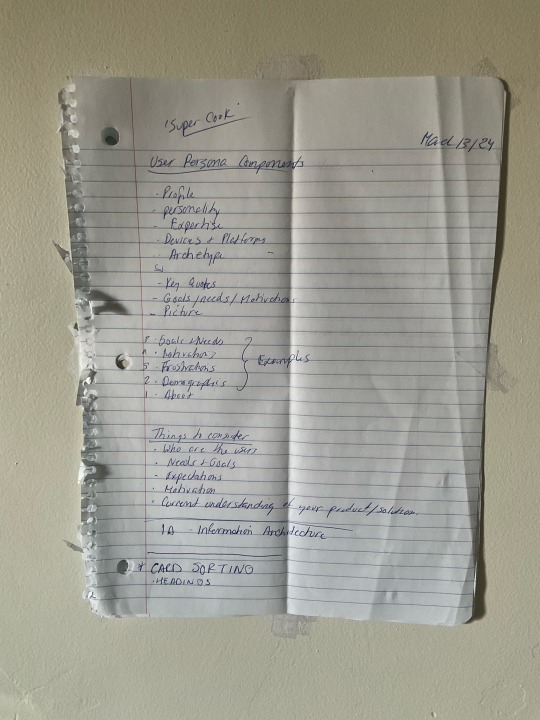 'Super Cook'
March 13/24
User Persona Components
- Profile
- personality
- Expertise
- Devices + Platforms
- Archetype
- Key Quotes
- Goals/needs/Motivations
- Picture
3 - Goals + Needs
4 - Motivations
5 - Frustrations
2 - Demographics
1 - About
} Examples
Things to consider
• Who are the users
• Needs + Goals
- Expectations
• Motivation
• Current understanding of your product/solution.
IA - Information Architecture
* CARD SORTING
• HEADINGS